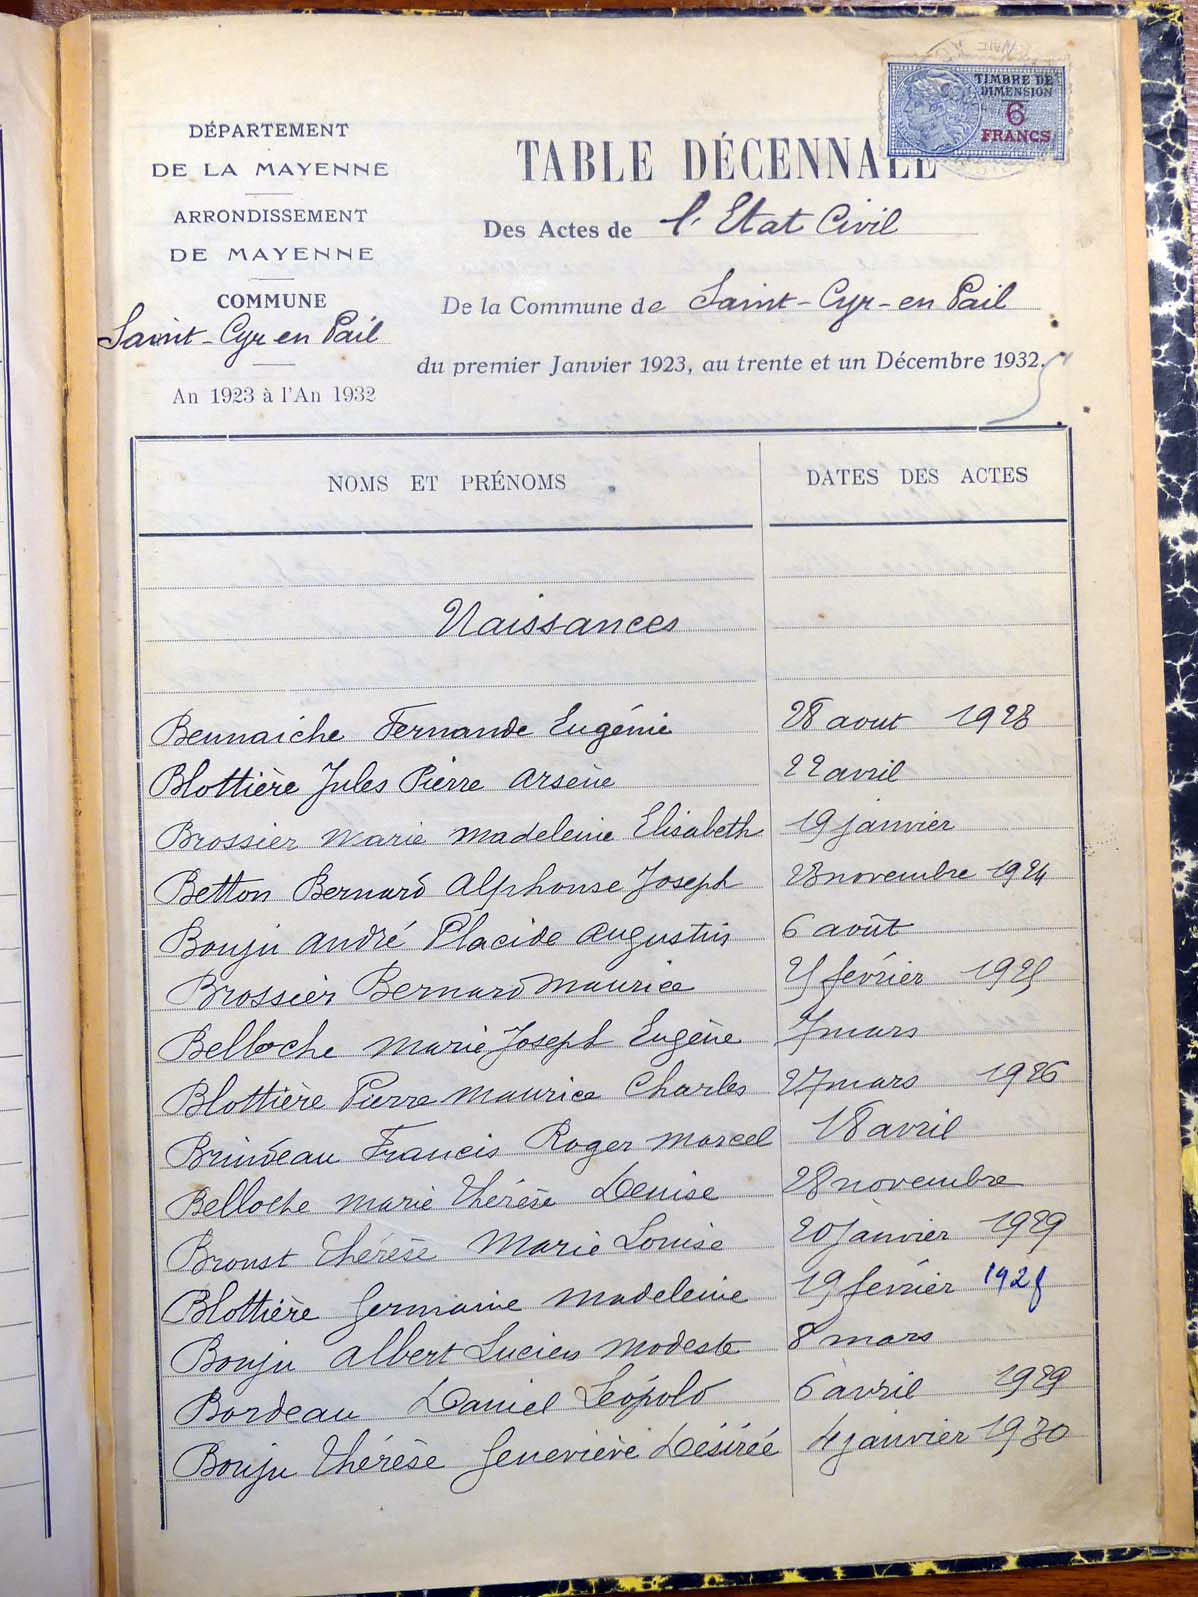 TIMBRE DE
DIMENSION
6
FRANCS
DÉPARTEMENT
DE LA MAYENNE
ARRONDISSEMENT
DE MAYENNE
COMMUNE
Saint-Cyr en Pail
An 1923 à l'An 1932
TABLE DÉCENNALE
Des Actes de l'Etat Civil
De la Commune de Saint-Cyr-en Pail
du premier Janvier 1923, au trente et un Décembre 1932.
NOMS ET PRÉNOMS DATES DES ACTES
Naissances
Bennaiche Fernande Eugénie 28 aout 1923
Blottière Jules Pierre Arsène 22 avril
Brossier Marie Madeleine Elisabeth 19 janvier
Betton Bernard Alphonse Joseph 28 novembre 1924
Bouju André Placide Augustin 6 août
Brossier Bernard Maurice 25 février 1925
Belloche Marie Joseph Eugène 7 mars
Blottière Pierre Maurice Charles 27 mars 1926
Brindeau Francis Roger Marcel 18 avril
Belloche Marie Thérèse Denise 28 novembre
Broust Thérèse Marie Louise 20 janvier 1929
Blottière Germaine Madeleine 19 février 1928
Bouju Albert Lucien Modeste 8 mars
Bordeau Daniel Léopold 6 avril 1929
Bouju Thérèse Geneviève Désirée 4 janvier 1930